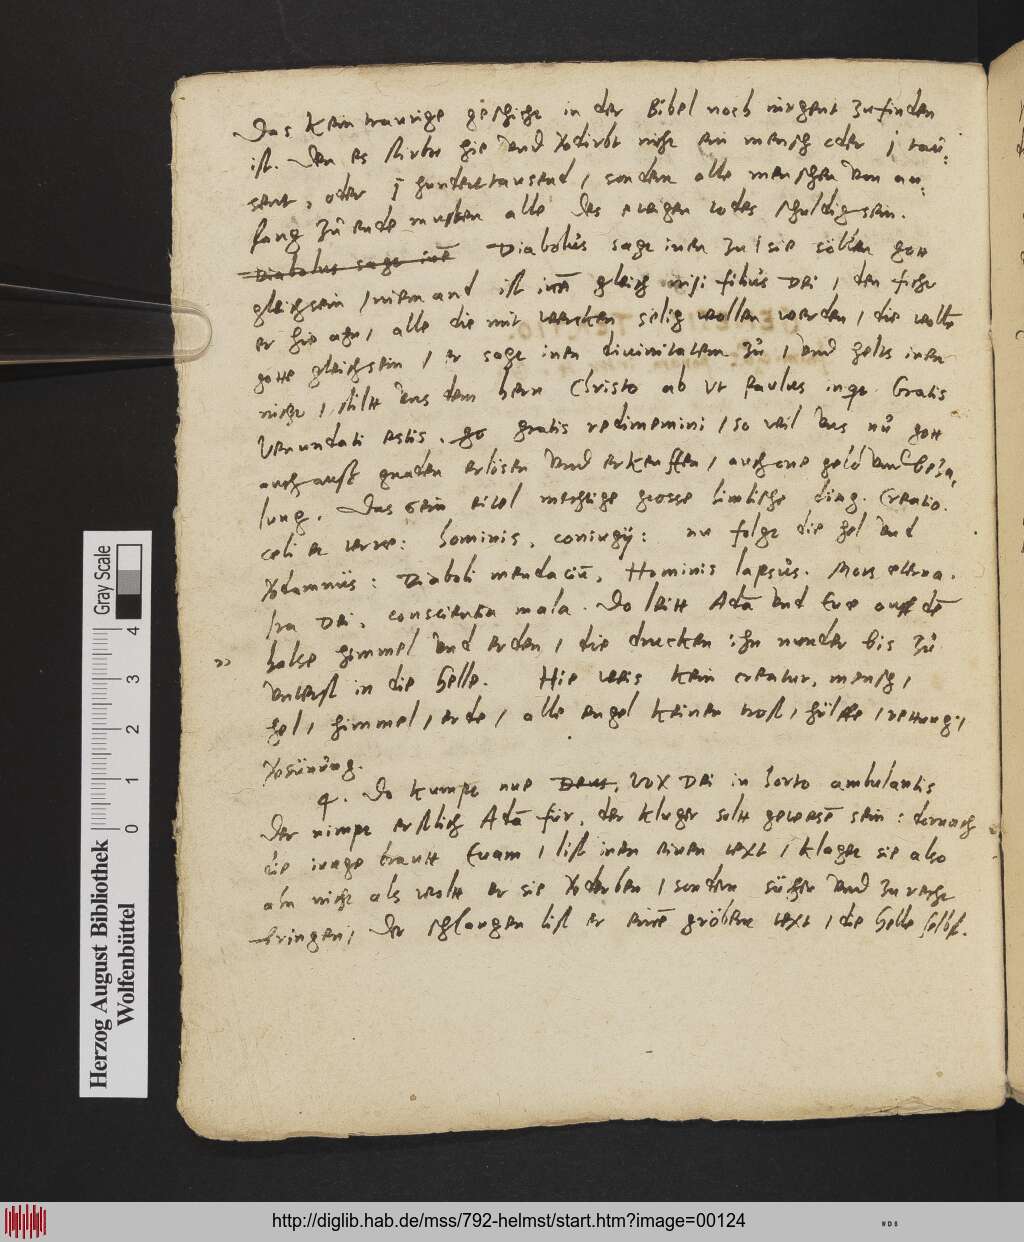 Das kein traurige geschicht in der Bibel noch nirgent zu finden
ist. Den es stirbt hie vnd verdirbt nicht ein mensch oder j tau=
sent, oder j hunderttausend / sondern alle menschen von an=
fang zu ende mussen alle des ewigen todes schuldig sein.
Diabolus sagt inen Diabolus sagt inen zu / sie sollen gott
gleich sein / niemand ist inen gleich nisi filius Dei / den sicht
er hie ahn / alle die mit wercken selig wollen werden / die wollen
gotte gleich sein / er sagt inen diuinitatem zu / vnd helts inen
nicht / stilt vns dem hern Christo ab vt Paulus inqt. Gratis
Venundati estis. gratis redimemini / so weil vns nu gott
auch auss gnaden erlosen vnd erkeuffen / auch one geld vnd beza=
lung. Das sein eitel mechtige grosse himlische ding. Creatio
celi et terre: hominis, coniugij: nu folgt die hel vnd
verdamniss: Diaboli mendacium, Hominis lapsus. Mors eterna.
Ira Dei, conscientia mala. Do leitt Adam vnd Eue auff dem
halse himmel vnd erden / die drucken ihn nunder bis zu
vnterst in die helle. Hie weis kein creatur, mensch /
hel / himmel / erde / alle engel keinen trost / hülffe / rettung /
versünung.
4. Do kumpt nue Deus, vox Dei in horto ambulantis
Der nimpt erstlich Adam für, der kluger solt gewesen sein: dornach
die iunge brautt Euam / list inen einen text / klaget sie also
ahn nicht als wolt er sie verderben / sondern süchet vnd zu recht
bringen / Der schlangen list er einen gröbern text / die helle selbst.
Gray Scale
0 1 2 3 4
Herzog August Bibliothek
Wolfenbüttel
http://diglib.hab.de/mss/792-helmst/start.htm?image=00124